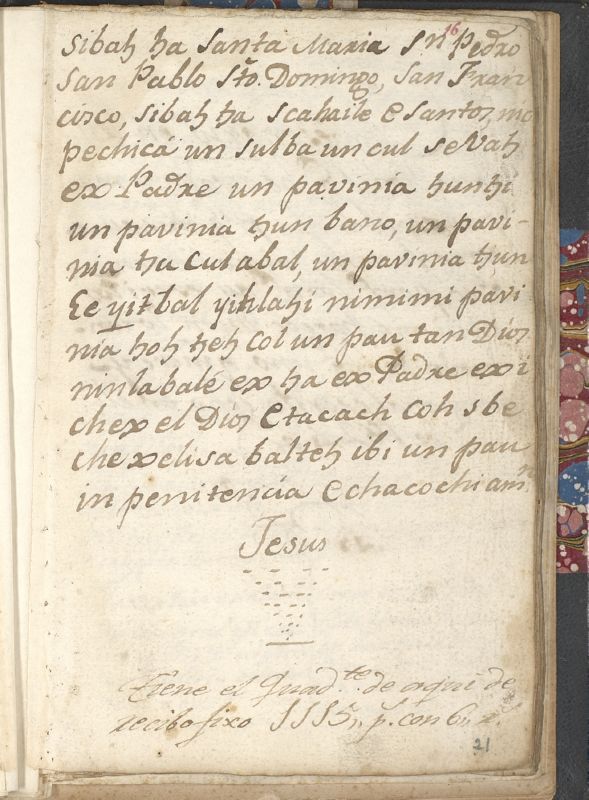 16
sibah ha Santa Maria Sn Pedro
San Pablo Sto. Domingo, San Fran
cisco, sibah ha scahaile e santoz, mo
pechicá un sulba un cul se Vah
ex Padre un pavinia hunhi
un pavinia hun bano, un pavi-
nia ha cul abal, un pavinia hun
Ee yitbal yihlahi nimimi pavi
nia hoh heh col un pau tan Dioz
ninlabalé ex ha ex Padre ex i
chex el Dioz Etacach Coh sbe
chexelisa balteh ibi un pau
in penitencia echacochi amn.
Jesus
Tiene el Quadte. de aqui de
recibo fixo 1115 p. con 6
21